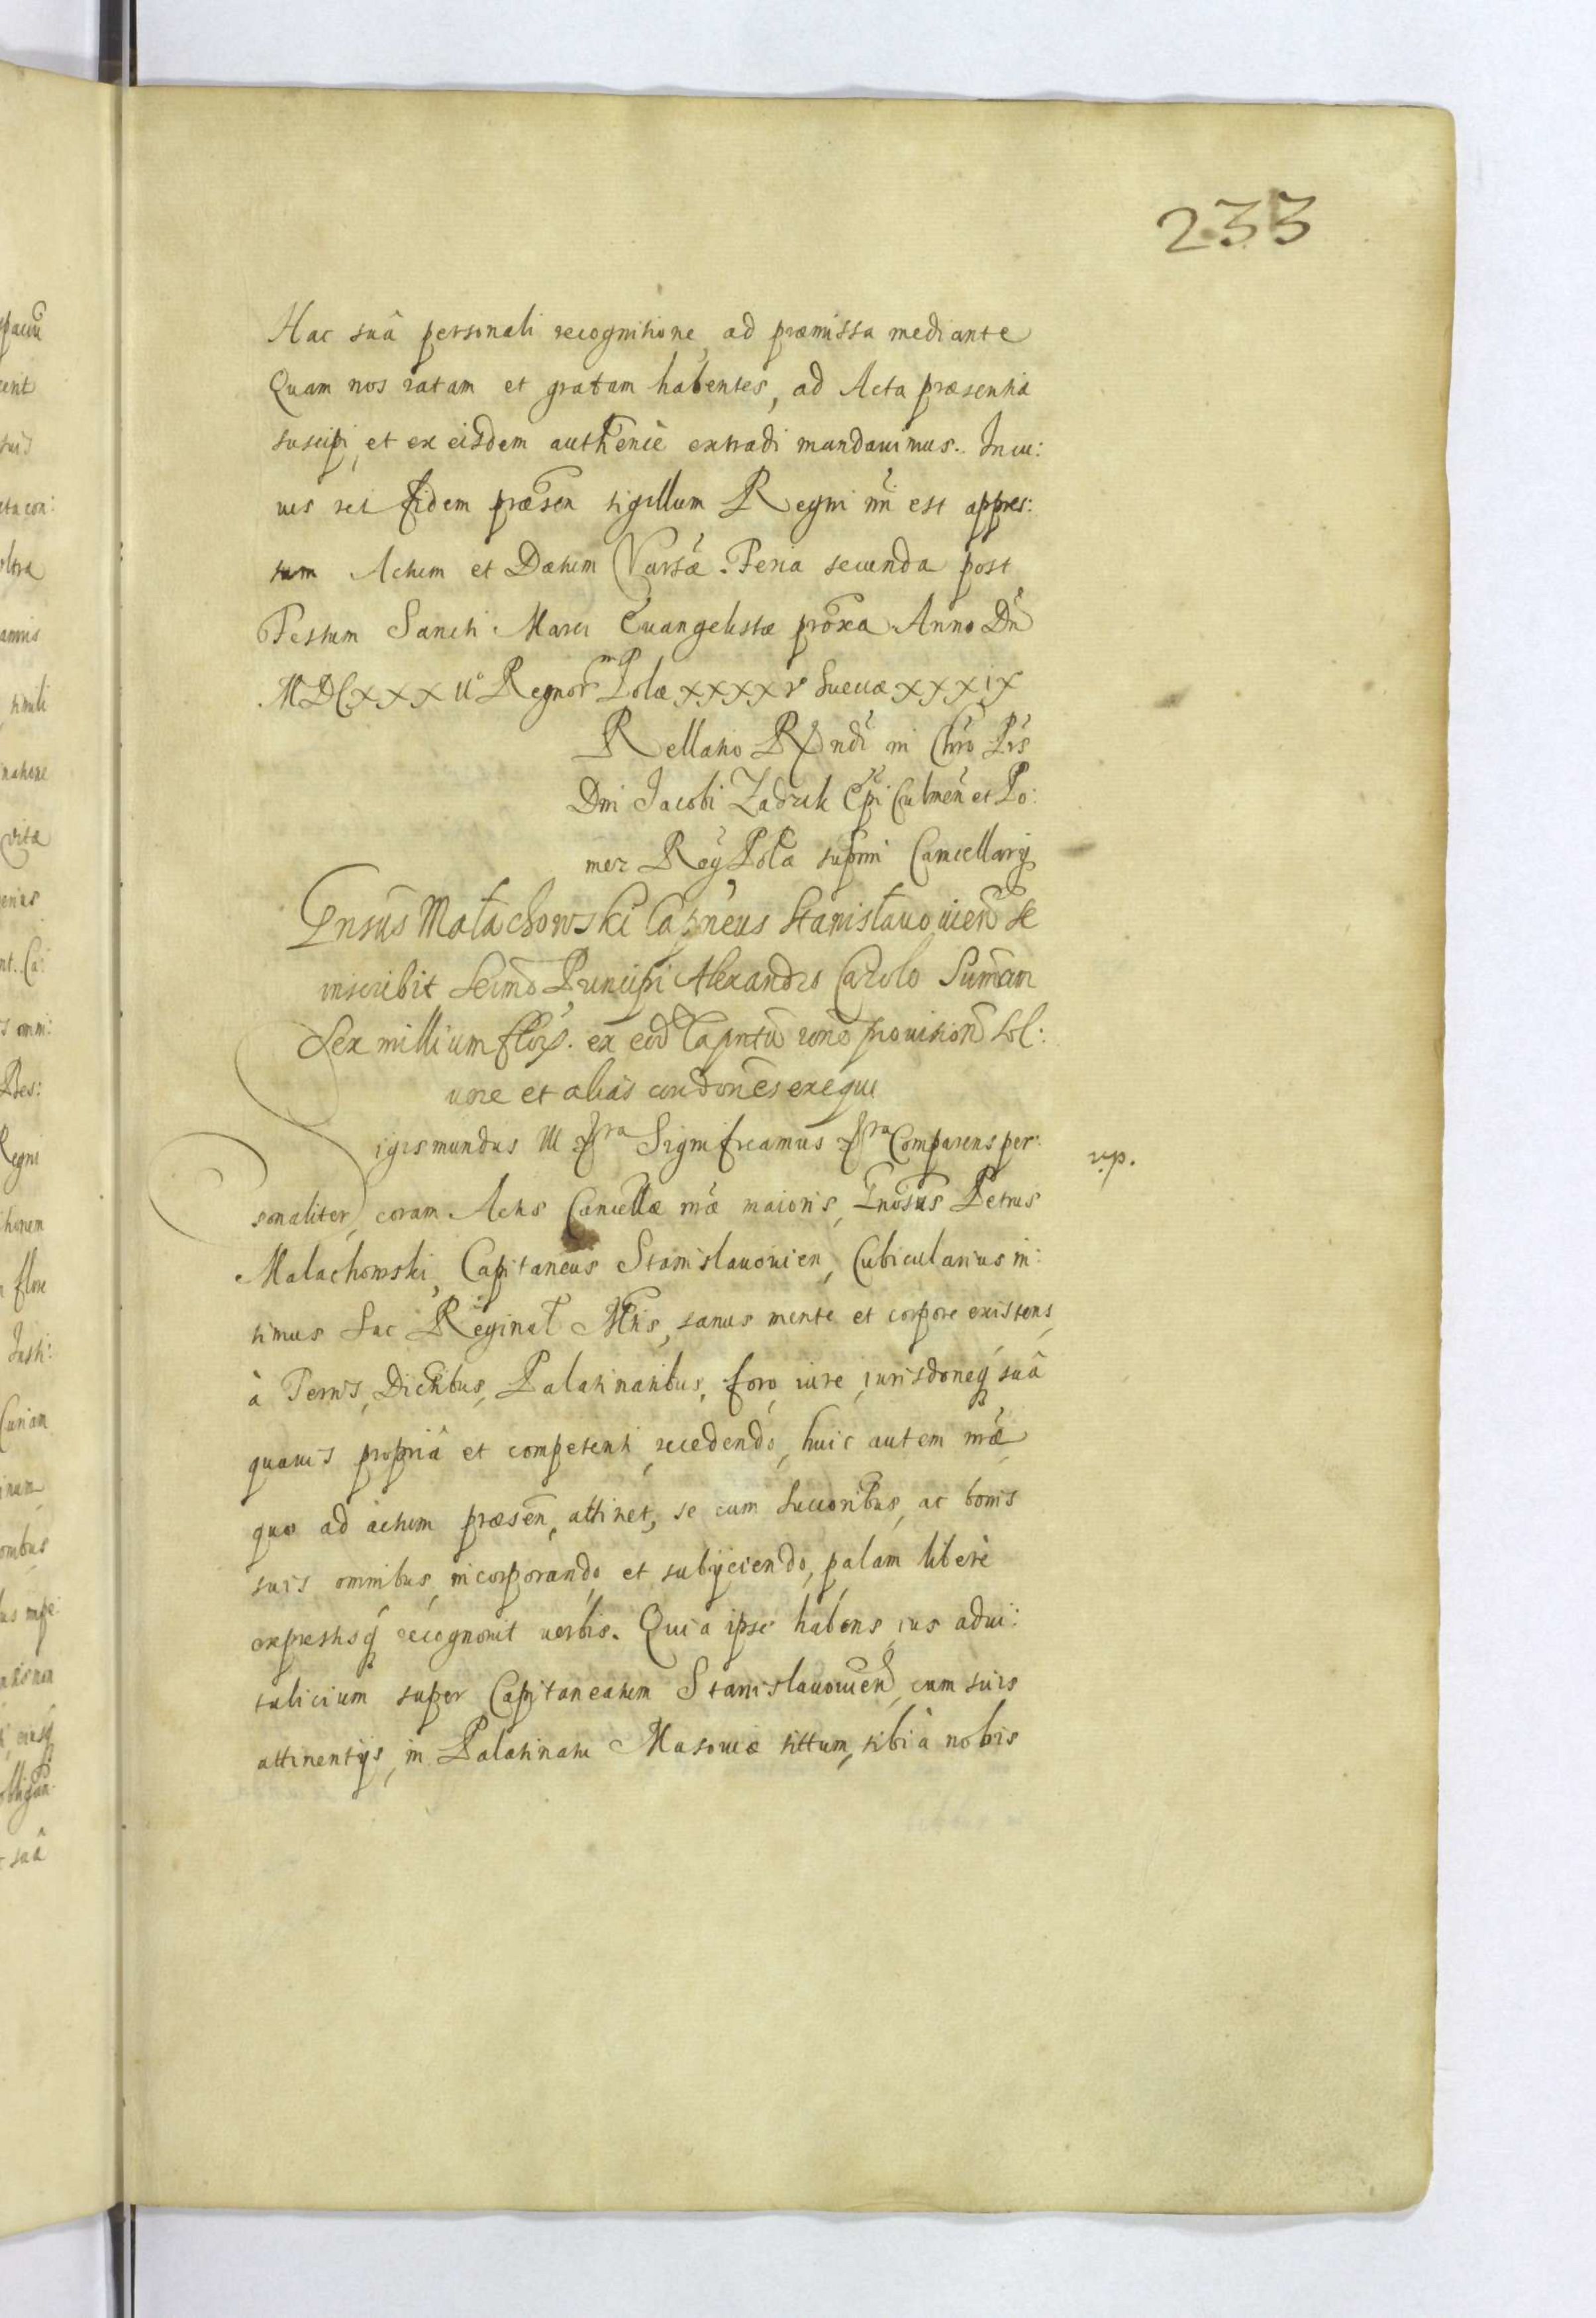 233
Hac suâ personali recognitione, ad præmissa mediante
Quam nos ratam et gratam habentes, ad Acta præsentia
suscipi, et ex eisdem authen̄ce extradi mandauimus. In cu:
ius rei fidem præsen̄ sigillum Regni nr̄i est appres:
sum Actum et Datum Varsæ. Feria secunda post
Festum Sancti Marci Euangelistæ prox̄a Anno Dn̄i
MDCXXXIIº Regnor̄m Polæ XXXXV Sueciæ XXXIX
Rellatio Rndi in Chro Pr̄s
Dni Jacobi Zadzik Epi Culmen̄ et Po:
mez Reg Polæ supmi Cancellarij
Gn̄sus Małachowski Capneus Stanisławouien̄ se
inscribit Sermo Principi Alexandro Carolo Sum̄am
Sex millium flor. ex eod Capntu rone prouision̄ sol:
uere et alias condon̄es exequi
igismundus III &ra Significamus &ra Comparens per:
sonaliter, coram Actis Cancellæ nr̄æ maioris, Gn̄osus Petrus
Malachowski, Capitaneus Stanislauouien, Cubicularius in:
timus Sac Reginal Mtis, sanus mente et corpore existens,
à Terris, Dictibus, Palatinatibus, foro, iure, iurisdoneq, suâ
quauis propriâ et competenti, recedendo, huic autem nr̄æ
quo ad actum præsen̄, attinet, se cum succoribus, ac bonis
suis omnibus, incorporando et subijciendo, palam liberè
expressisq recognouit verbis. Quia ipse habens, ius adui:
talicium super Capitaneatum Stanislauouien̄, cum suis
attinentijs, in Palatinatu Masouiæ sittum, sibi à nobis